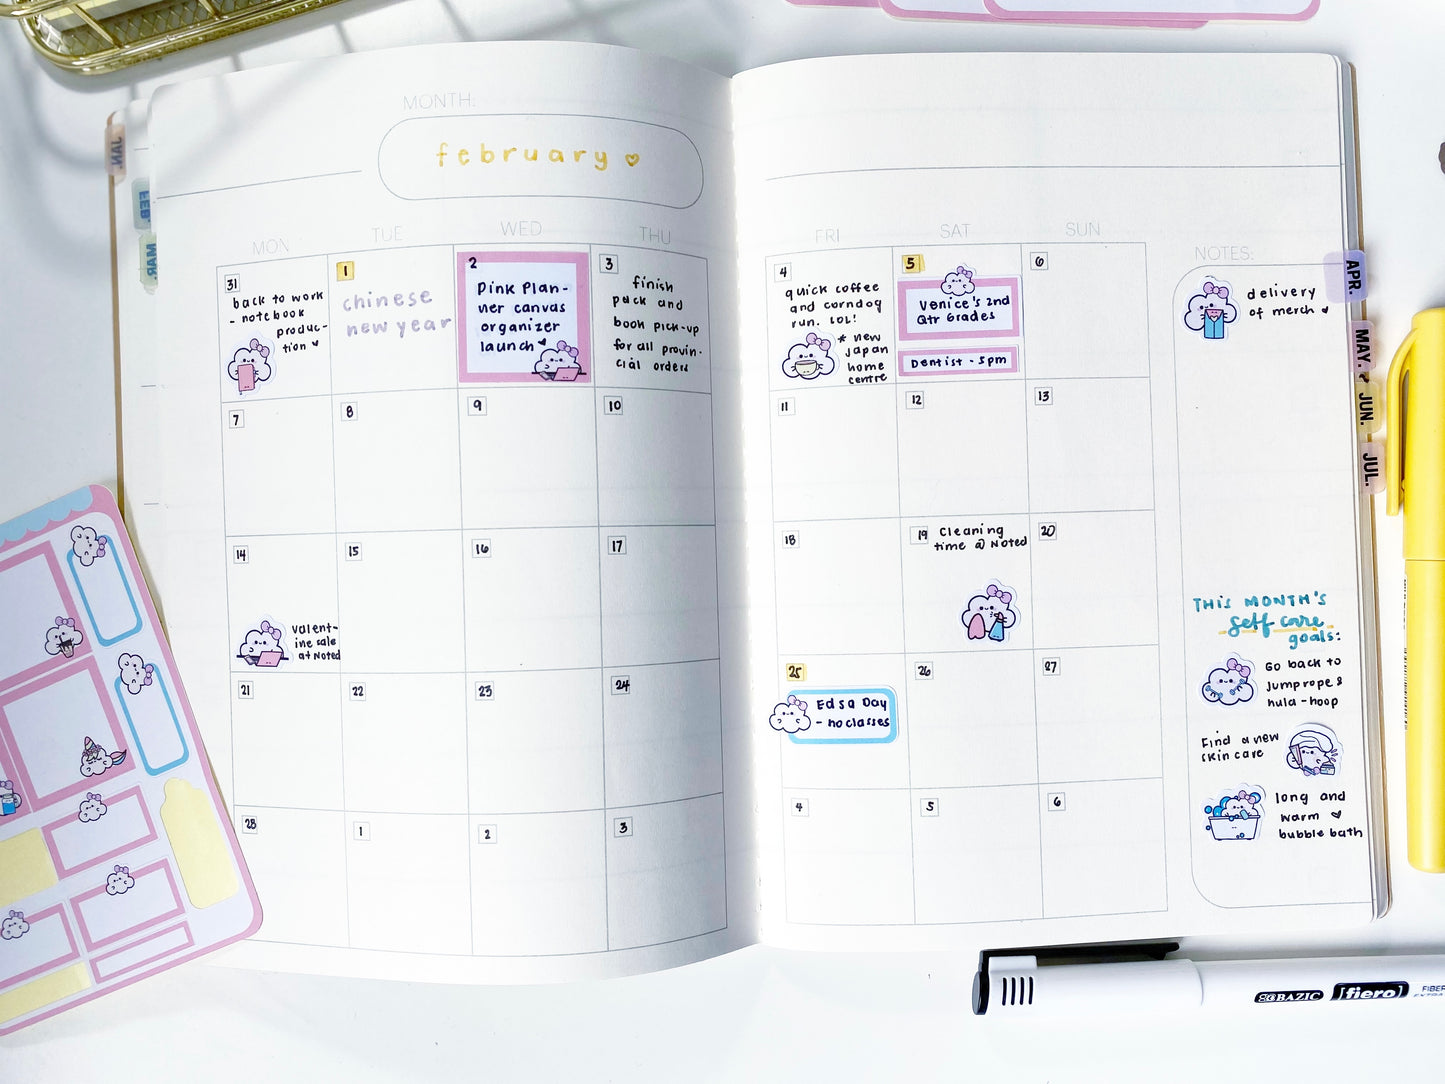 MONTH:
february
MON
TUE
WED
THU
FRI
SAT
SUN
NOTES:
31
back to work
- notebook
produc-
tion
1
chinese
new year
2
Pink Plan-
ner canvas
organizer
launch
3
finish
pack and
book pick-up
for all provin-
cial orders
4
quick coffee
and corndog
run. LOL!
* new
Japan
home
centre
5
Venice's 2nd
Qtr Grades
Dentist - 5pm
6
7
8
9
10
11
12
13
14
Valent-
ine sale
at Noted
15
16
17
18
19
Cleaning
time @ Noted
20
21
22
23
24
25
Edsa Day
- no classes
26
27
28
1
2
3
4
5
6
delivery
of merch
THIS MONTH'S
self care
goals:
Go back to
jumprope &
hula-hoop
Find a new
skin care
long and
warm
bubble bath
JAN.
FEB.
MAR.
APR.
MAY.
JUN.
JUL.
BAZIC
fiero
FIBER